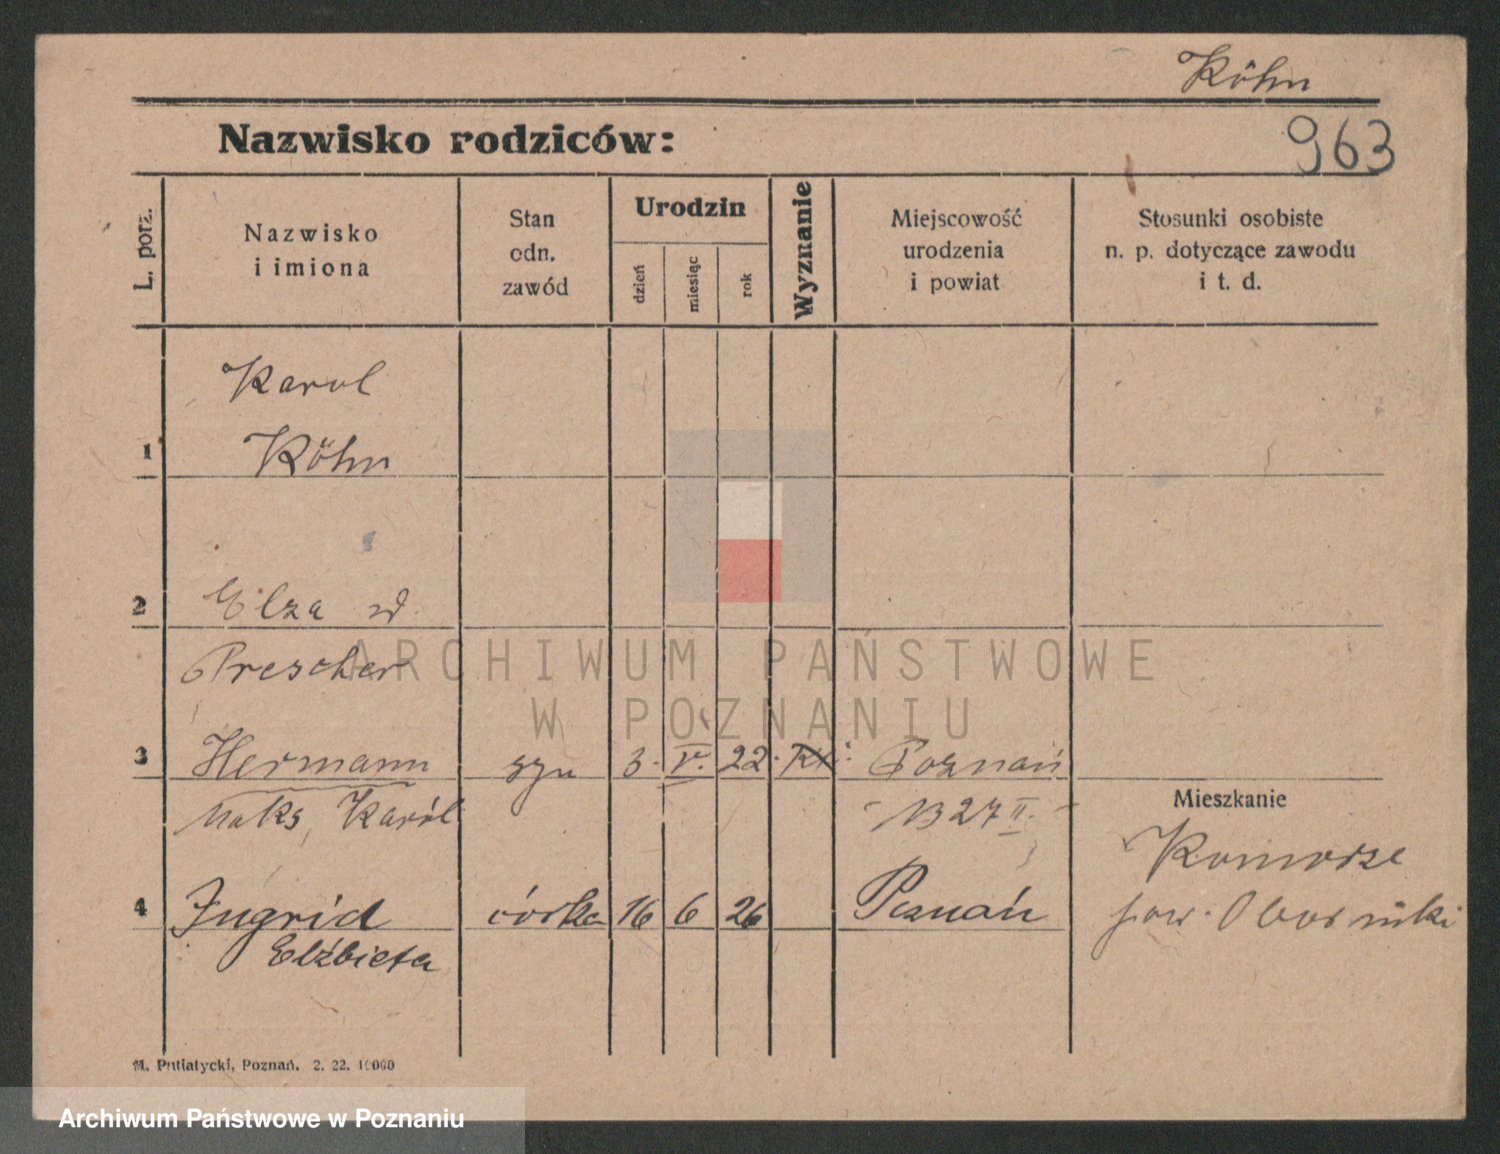 Köhn
963
Nazwisko rodziców:
L. porz.
Nazwisko
i imiona
Stan
odn.
zawód
Urodzin
dzień
miesiąc
rok
Wyznanie
Miejscowość
urodzenia
i powiat
Stosunki osobiste
n. p. dotyczące zawodu
i t. d.
Karol
1 Köhn
2 Elza
Prescher
3 Hermann syn 3. V. 22. Poznań
Maks, Karól
Mieszkanie
4 Ingrid córka 16 6 26 Poznań
Elżbieta
pow. Obornicki
M. Putiatycki, Poznań. 2. 22. 10000
ARCHIWUM PAŃSTWOWE
W POZNANIU
Archiwum Państwowe w Poznaniu